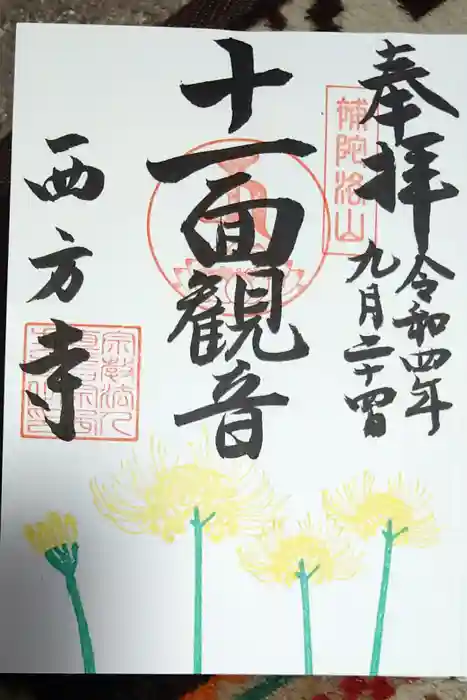 奉拝
令和四年
九月二十四日
補陀洛山
十一面観音
西方寺